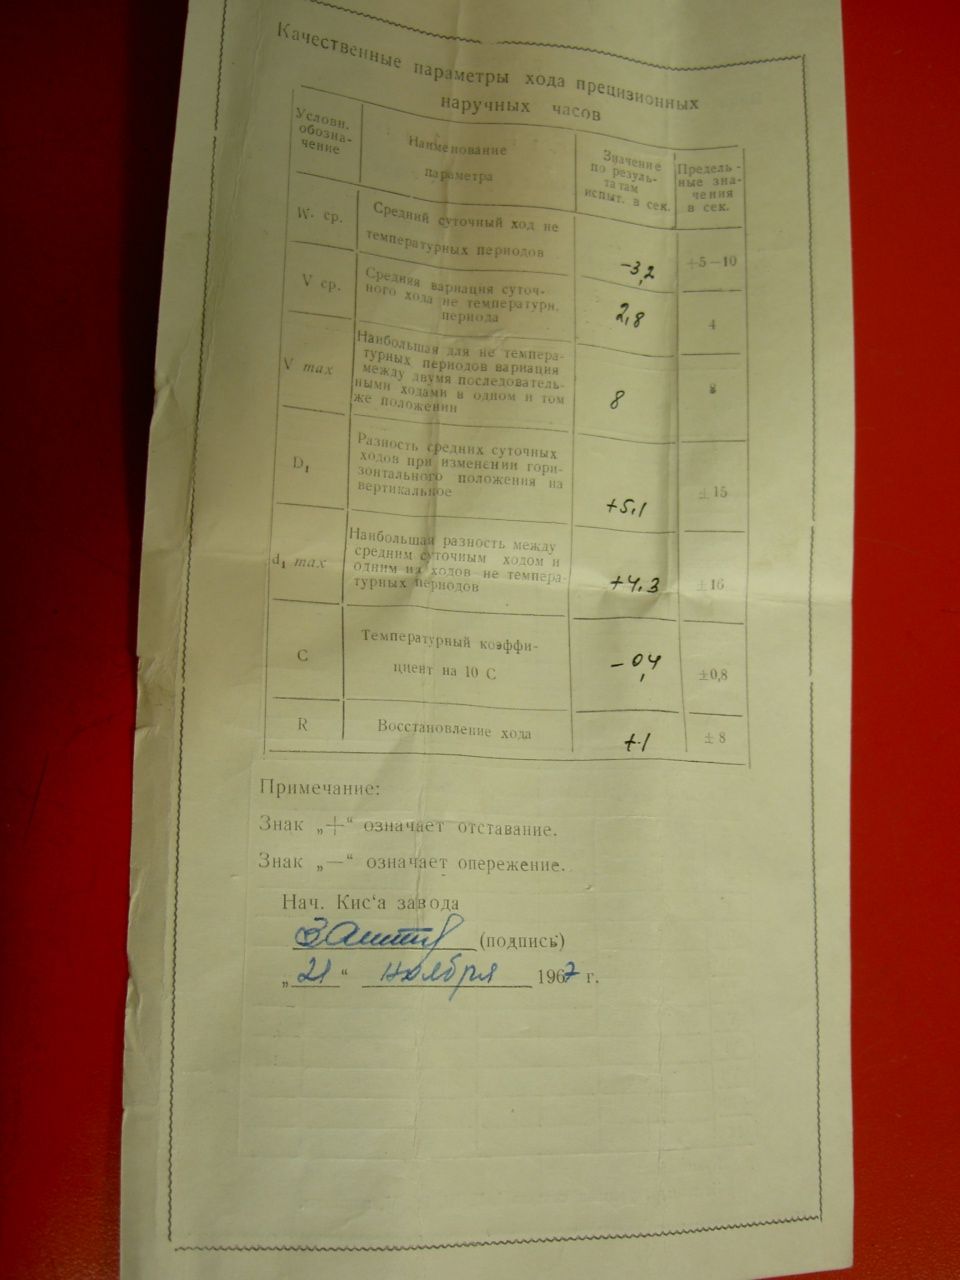 Качественные параметры хода прецизионных
наручных часов
Условн.
обозна-
чение
Наименование
параметра
Значение
по резуль-
татам
испыт. в сек.
Предель-
ные зна-
чения
в сек.
W. ср.
Средний суточный ход не
температурных периодов
-3,2
+5-10
V ср.
Средняя вариация суточ-
ного хода не температурн.
периода
2,8
4
V max
Наибольшая для не темпера-
турных периодов вариация
между двумя последователь-
ными ходами в одном и том
же положении
8
8
D₁
Разность средних суточных
ходов при изменении гори-
зонтального положения на
вертикальное
+5,1
±15
d₁ max
Наибольшая разность между
средним суточным ходом и
одним из ходов не темпера-
турных периодов
+4,3
±16
C
Температурный коэффи-
циент на 10 С
-0,4
±0,8
R
Восстановление хода
+1
±8
Примечание:
Знак „+“ означает отставание.
Знак „—“ означает опережение.
Нач. Кис‘а завода
(подпись)
„21“ ноября 1967 г.